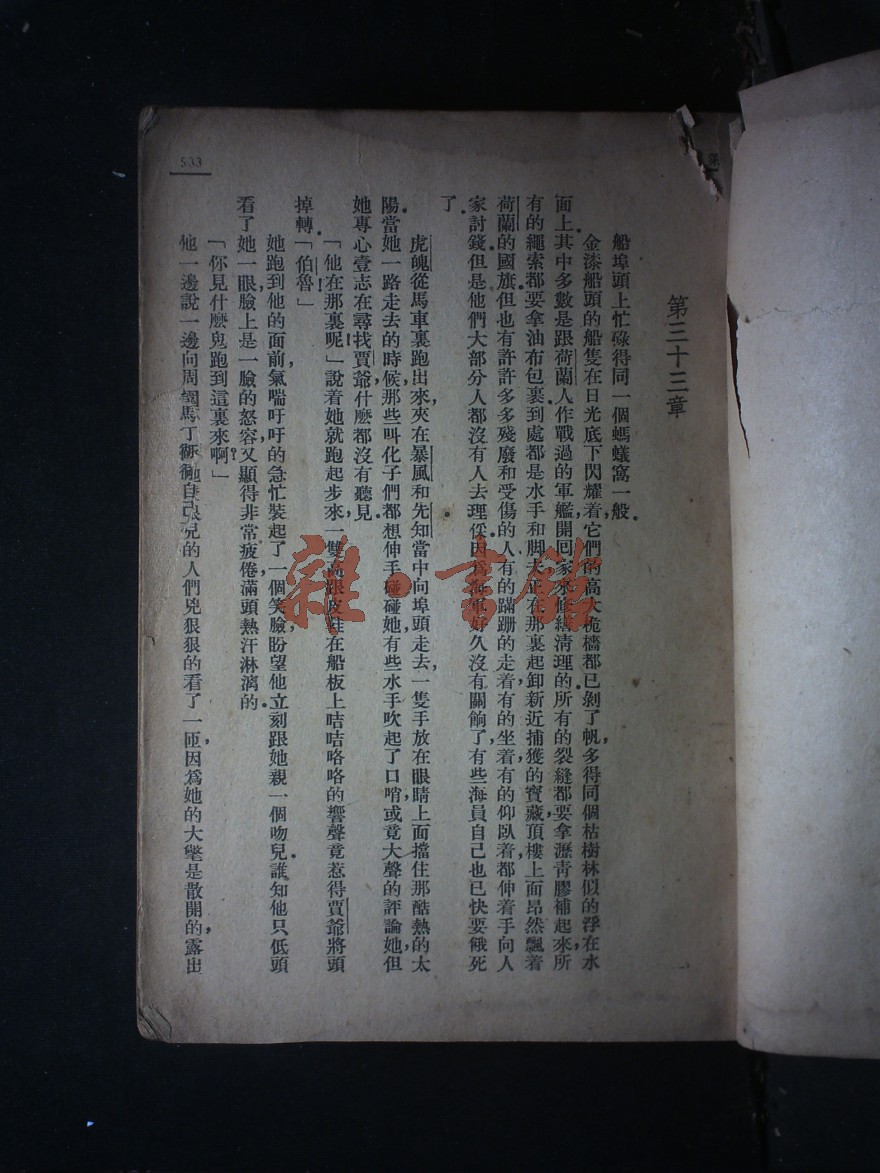 第三十三章
船埠頭上忙碌得同一個螞蟻窩一般。
金漆船頭的船隻在日光底下閃耀着，它們的高大桅檣都已剝了帆，多得同個枯樹林似的浮在水
面上。其中多數是跟荷蘭人作戰過的軍艦，開回家來修繕清理的。所有的裂縫都要拿瀝青膠補起來，所
有的繩索都要拿油布包裹。到處都是水手和脚夫，正在那裏起卸新近捕獲的寶藏，頂樓上面昂然飄着
荷蘭的國旗。但也有許許多多殘廢和受傷的人，有的蹣跚的走着，有的坐着，有的仰臥着，都伸着手向人
家討錢。但是他們大部分人都沒有人去理倸，因爲海軍好久沒有關餉了，有些海員自己也已快要餓死
了。
虎魄從馬車裏跑出來，夾在暴風和先知當中向埠頭走去，一隻手放在眼睛上面擋住那酷熱的太
陽。當她一路走去的時候，那些叫化子們都想伸手碰碰她，有些水手吹起了口哨，或竟大聲的評論她，但
她專心壹志在尋找賈爺，什麽都沒有聽見。
「他在那裏呢！」說着她就跑起步來，一雙高跟皮鞋在船板上咭咭咯咯的響聲竟惹得賈爺將頭
掉轉。「伯魯！」
她跑到他的面前，氣喘吁吁的，急忙裝起了一個笑臉，盼望他立刻跟她親一個吻兒。誰知他只低頭
看了她一眼，臉上是一臉的怒容，又顯得非常疲倦，滿頭熱汗淋漓的。
「你見什麽鬼跑到這裏來啊？」
他一邊說，一邊向周圍馬丁 的人們兇狠狠的看了一匝，因爲她的大氅是散開的，露出
533
雜·書館